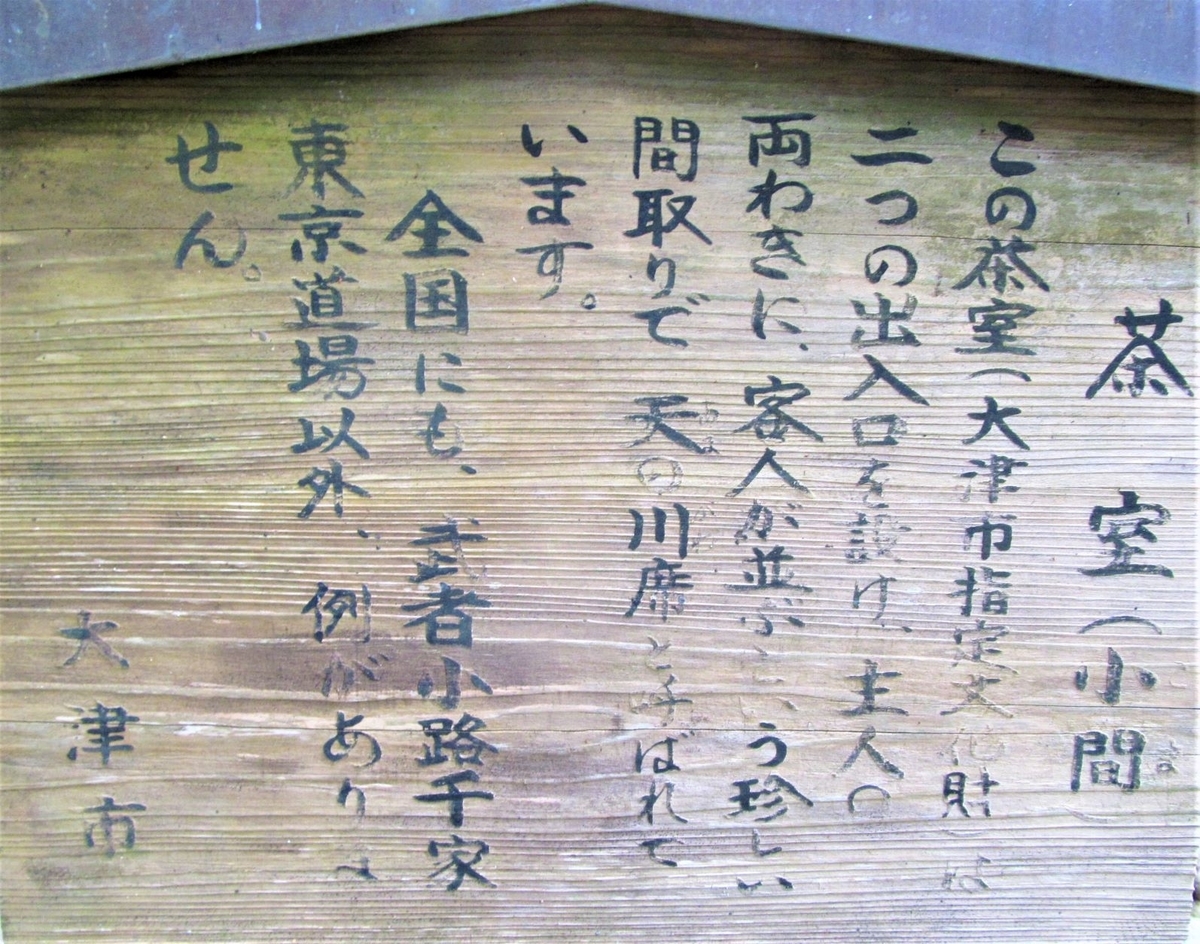 茶室（小間）
この茶室（大津市指定文化財）は
二つの出入口を設け、主人の
両わきに、客人が並ぶという珍しい
間取りで天の川席と呼ばれて
います。
全国にも、武者小路千家
東京道場以外、例がありま
せん。
大津市